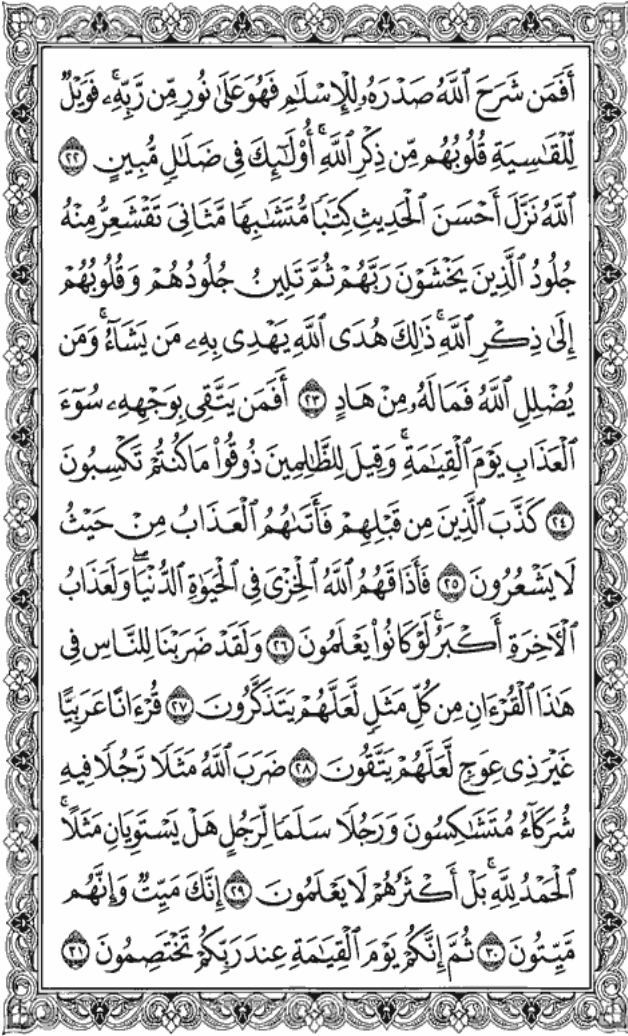 أَفَمَن شَرَحَ ٱللَّهُ صَدْرَهُۥ لِلْإِسْلَٰمِ فَهُوَ عَلَىٰ نُورٍ مِّن رَّبِّهِۦ ۚ فَوَيْلٌ
لِّلْقَٰسِيَةِ قُلُوبُهُم مِّن ذِكْرِ ٱللَّهِ ۚ أُو۟لَٰٓئِكَ فِى ضَلَٰلٍ مُّبِينٍ ٢٢
ٱللَّهُ نَزَّلَ أَحْسَنَ ٱلْحَدِيثِ كِتَٰبًا مُّتَشَٰبِهًا مَّثَانِىَ تَقْشَعِرُّ مِنْهُ
جُلُودُ ٱلَّذِينَ يَخْشَوْنَ رَبَّهُمْ ثُمَّ تَلِينُ جُلُودُهُمْ وَقُلُوبُهُمْ
إِلَىٰ ذِكْرِ ٱللَّهِ ۚ ذَٰلِكَ هُدَى ٱللَّهِ يَهْدِى بِهِۦ مَن يَشَآءُ ۚ وَمَن
يُضْلِلِ ٱللَّهُ فَمَا لَهُۥ مِنْ هَادٍ ٢٣ أَفَمَن يَتَّقِى بِوَجْهِهِۦ سُوٓءَ
ٱلْعَذَابِ يَوْمَ ٱلْقِيَٰمَةِ ۚ وَقِيلَ لِلظَّٰلِمِينَ ذُوقُوا۟ مَا كُنتُمْ تَكْسِبُونَ
٢٤ كَذَّبَ ٱلَّذِينَ مِن قَبْلِهِمْ فَأَتَىٰهُمُ ٱلْعَذَابُ مِنْ حَيْثُ
لَا يَشْعُرُونَ ٢٥ فَأَذَاقَهُمُ ٱللَّهُ ٱلْخِزْىَ فِى ٱلْحَيَوٰةِ ٱلدُّنْيَا ۖ وَلَعَذَابُ
ٱلْءَاخِرَةِ أَكْبَرُ ۚ لَوْ كَانُوا۟ يَعْلَمُونَ ٢٦ وَلَقَدْ ضَرَبْنَا لِلنَّاسِ فِى
هَٰذَا ٱلْقُرْءَانِ مِن كُلِّ مَثَلٍ لَّعَلَّهُمْ يَتَذَكَّرُونَ ٢٧ قُرْءَانًا عَرَبِيًّا
غَيْرَ ذِى عِوَجٍ لَّعَلَّهُمْ يَتَّقُونَ ٢٨ ضَرَبَ ٱللَّهُ مَثَلًا رَّجُلًا فِيهِ
شُرَكَآءُ مُتَشَٰكِسُونَ وَرَجُلًا سَلَمًا لِّرَجُلٍ هَلْ يَسْتَوِيَانِ مَثَلًا ۚ
ٱلْحَمْدُ لِلَّهِ ۚ بَلْ أَكْثَرُهُمْ لَا يَعْلَمُونَ ٢٩ إِنَّكَ مَيِّتٌ وَإِنَّهُم
مَّيِّتُونَ ٣٠ ثُمَّ إِنَّكُمْ يَوْمَ ٱلْقِيَٰمَةِ عِندَ رَبِّكُمْ تَخْتَصِمُونَ ٣١